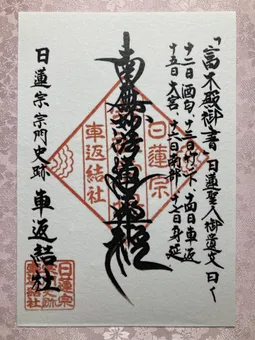 「富木殿御書 日蓮聖人御遺文曰く
十二日酒匂 十三日竹ノ下 十四日車返
十五日大宮 十六日南部 十七日身延
南無妙法蓮華経
日蓮宗
車返結社
日蓮宗 宗門史跡 車返結社
日蓮宗
宗門史跡
車返結社